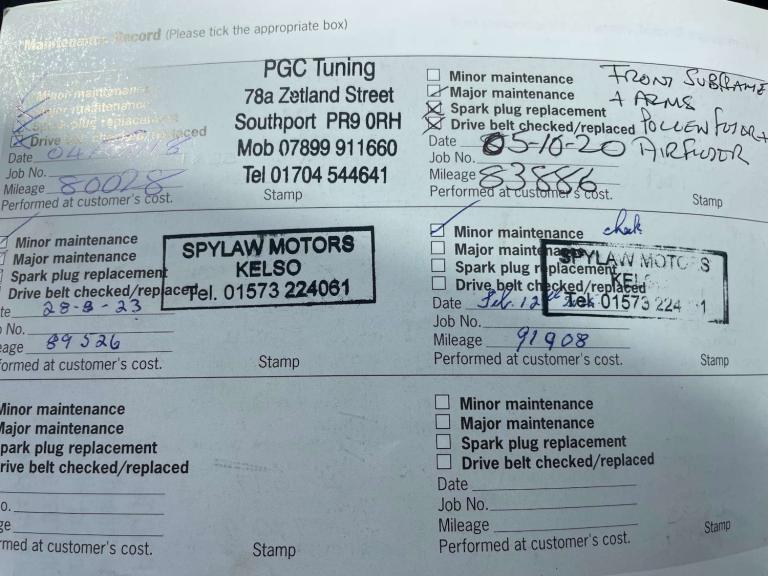 Maintenance Record (Please tick the appropriate box)
Minor maintenance
Major maintenance
Spark plug replacement
Drive belt checked/replaced
Date
Job No.
Mileage 80028
Performed at customer's cost.
PGC Tuning
78a Zetland Street
Southport PR9 0RH
Mob 07899 911660
Tel 01704 544641
Stamp
Minor maintenance
Major maintenance
Spark plug replacement
Drive belt checked/replaced
Date 05-10-20
Job No.
Mileage 83886
Performed at customer's cost.
FRONT SUBFRAME
+ ARMS
POLLEN FILTER +
AIR FILTER
Stamp
Minor maintenance
Major maintenance
Spark plug replacement
Drive belt checked/replaced
te 28-8-23
No.
eage 89526
ormed at customer's cost.
SPYLAW MOTORS
KELSO
Tel. 01573 224061
Stamp
Minor maintenance check
Major maintenance
Spark plug replacement
Drive belt checked/replaced
Date Feb. 12th
Job No.
Mileage 91908
Performed at customer's cost.
SPYLAW MOTO S
KEL
Tel. 01573 224 1
Stamp
Minor maintenance
Major maintenance
park plug replacement
rive belt checked/replaced
o.
ge
rmed at customer's cost.
Stamp
Minor maintenance
Major maintenance
Spark plug replacement
Drive belt checked/replaced
Date
Job No.
Mileage
Performed at customer's cost.
Stamp